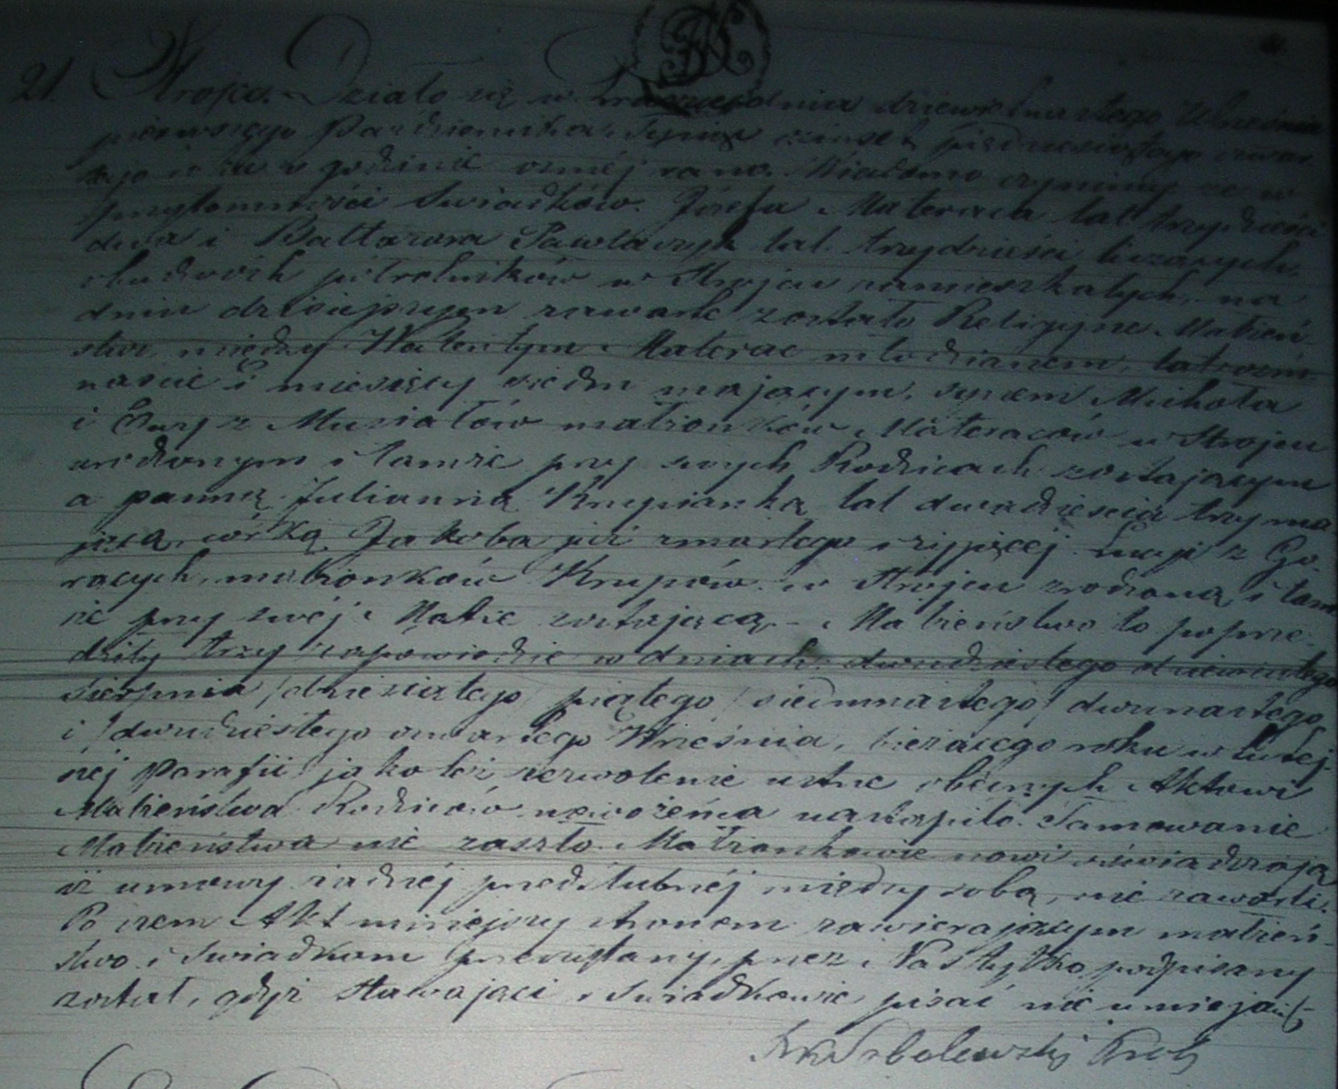 21. Strojec. Działo się w dnia dziewiętnastego Września
pierwszego Października Tysiąc ośmset pięćdziesiątego czwar
tego roku o godzinie ósmej rano. Wiadomo czynimy że w
przytomności Swiadków. Józefa Materaca lat trzydzieści
dwa i Baltazara Pawlaczyk lat trzydzieści liczących,
obudwóch półrolników w Strojcu zamieszkałych, na
dniu dzisiejszym zawarte zostało Religijne Małżeń
stwo między Walentym Materac młodzianem, lat ośm
naście i miesięcy siedm mającym, synem Michała
i Ewy z Musiałów małżonków Materaców w Strojcu
urodzonym i tamże przy swych Rodzicach zostającym
a panną Julianną Krupianką lat dwadzieścia trzy ma
jącą, córką Jakóba już zmarłego i żyjącej Łucji z Go
rących, małżonków Krupów w Strojcu zrodzoną i tam
że przy swéj Matce zostającą – Małżeństwo to poprze
dziły trzy zapowiedzie w dniach dwudziestego dziewiątego
Sierpnia /dziesiątego piątego /siedmnastego/ dwunastego,
i /dwudziestego czwartego Września, bieżącego roku w tutej
széj Parafii jako też zezwolenie ustne obecnych Aktowi
Małżeństwa Rodziców nastąpiło. Tamowanie
Małżeństwa nie zaszło. Małżonkowie nowi oświadczają
iż umowy żadnéj przedślubnéj między sobą, nie zawarli.
Po czem Akt niniejszy stronom zawierającym małżeń-
stwo i Swiadkom przeczytany, przez Nas tylko podpisany
został, gdyż Stawający i Swiadkowie pisać nie umieją.